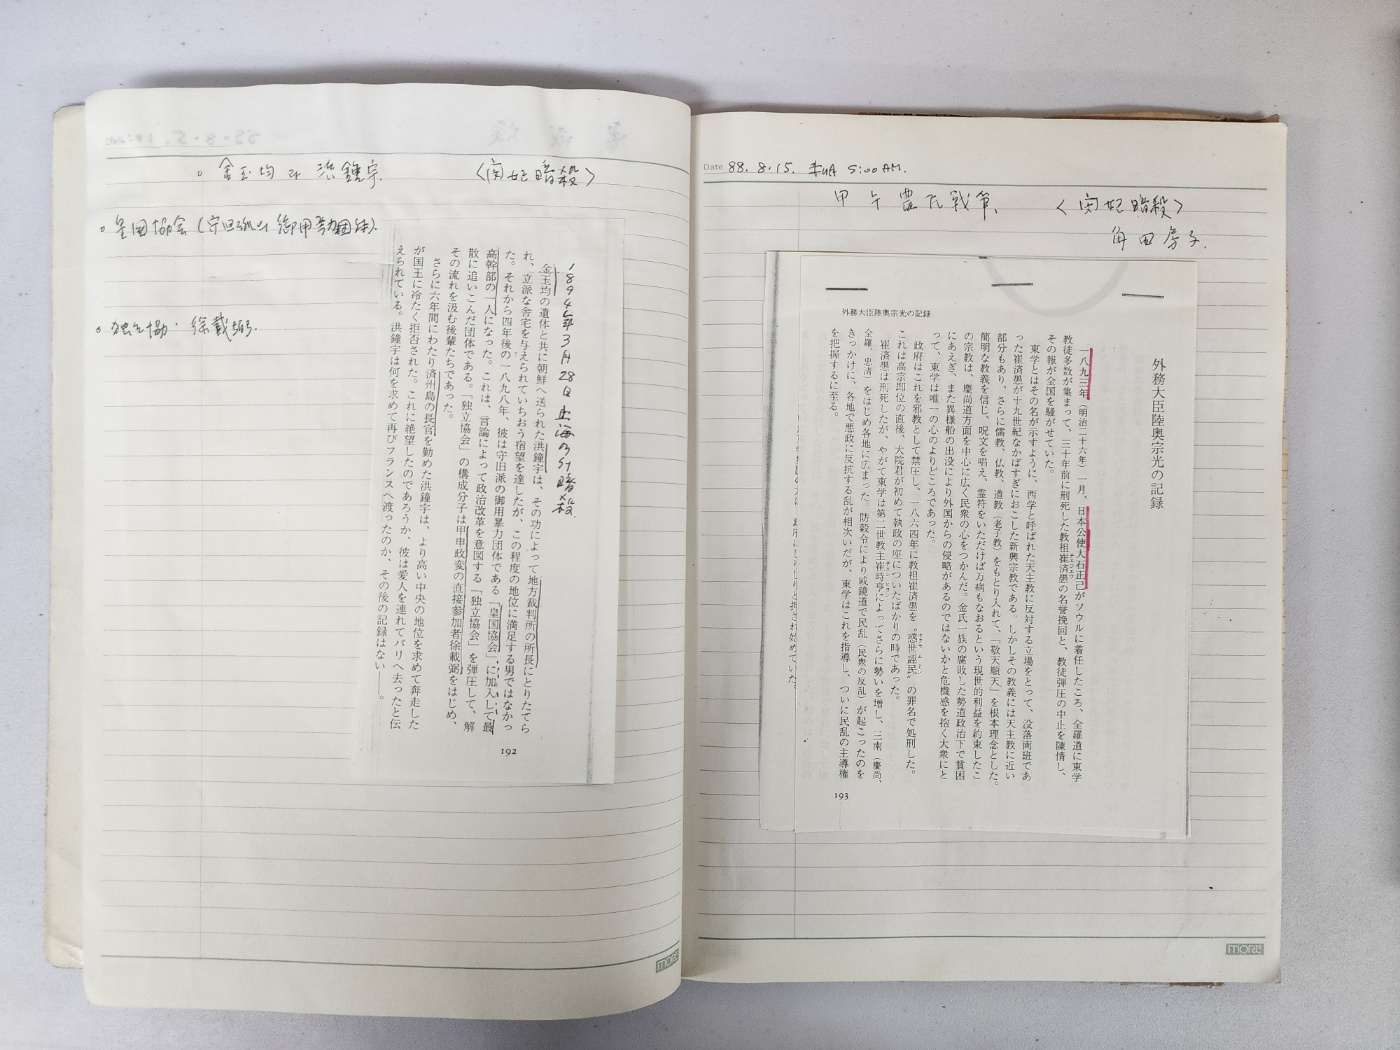 金玉均과 洪鍾宇. 〈閔妃暗殺〉
皇国協会
独立協· 徐載弼.
1894年3月28日 上海の引暗殺.
金玉均の遺体と共に朝鮮へ送られた洪鐘宇は、その功によって地方裁判所の所長にとりたてら
れ、立派な舎宅を与えられていちおう宿望を達したが、この程度の地位に満足する男ではなかっ
た。それから四年後の一八九八年、彼は守旧派の御用暴力団体である「皇国協会」に加入して最
高幹部の一人になった。これは、言論によって政治改革を意図する「独立協会」を弾圧して、解
散に追いこんだ団体である。「独立協会」の構成分子は甲申政変の直接参加者徐載弼をはじめ、
その流れを汲む後輩たちであった。
さらに六年間にわたり済州島の長官を勤めた洪鐘宇は、より高い中央の地位を求めて奔走した
が国王に冷たく拒否された。これに絶望したのであろうか、彼は愛人を連れてパリへ去ったと伝
えられている。洪鐘宇は何を求めて再びフランスへ渡ったのか、その後の記録はない──。
192
MORE
Date 88. 8. 15. 5:00 AM.
甲午農民戦争. 〈閔妃暗殺〉
角田房子.
外務大臣陸奥宗光の記録
外務大臣陸奥宗光の記録
一八九三年（明治二十六年）一月、日本公使大石正己がソウルに着任したころ、全羅道に東学
教徒多数が集まって、三十年前に刑死した教祖崔済愚の名誉挽回と、教徒弾圧の中止を陳情し、
その報が全国を騒がせていた。
東学とはその名が示すように、西学と呼ばれた天主教に反対する立場をとって、没落両班であ
った崔済愚が十九世紀なかばすぎにおこした新興宗教である。しかしその教義には天主教に近い
部分もあり、さらに儒教、仏教、道教（老子教）をもとり入れて、「敬天順天」を根本理念とした。
簡明な教義を信じ、呪文を唱え、霊符をいただけば万病もなおるという現世的利益を約束したこ
の宗教は、慶尚道方面を中心に広く民衆の心をつかんだ。金氏一族の腐敗した勢道政治下で貧困
にあえぎ、また異様船の出没により外国からの侵略があるのではないかと危機感を抱く大衆にと
って、東学は唯一の心のよりどころであった。
政府はこれを邪教として禁圧し、一八六四年に教祖崔済愚を〝惑世誣民〟の罪名で処刑した。
これは高宗即位の直後、大院君が初めて執政の座についたばかりの時であった。
崔済愚は刑死したが、やがて東学は第二世教主崔時亨によってさらに勢いを増し、三南（慶尚、
全羅、忠清）をはじめ各地に広まった。防穀令により咸鏡道で民乱（民衆の反乱）が起こったのを
きっかけに、各地で悪政に反抗する乱が相次いだが、東学はこれを指導し、ついに民乱の主導権
を把握するに至る。
193
MORE